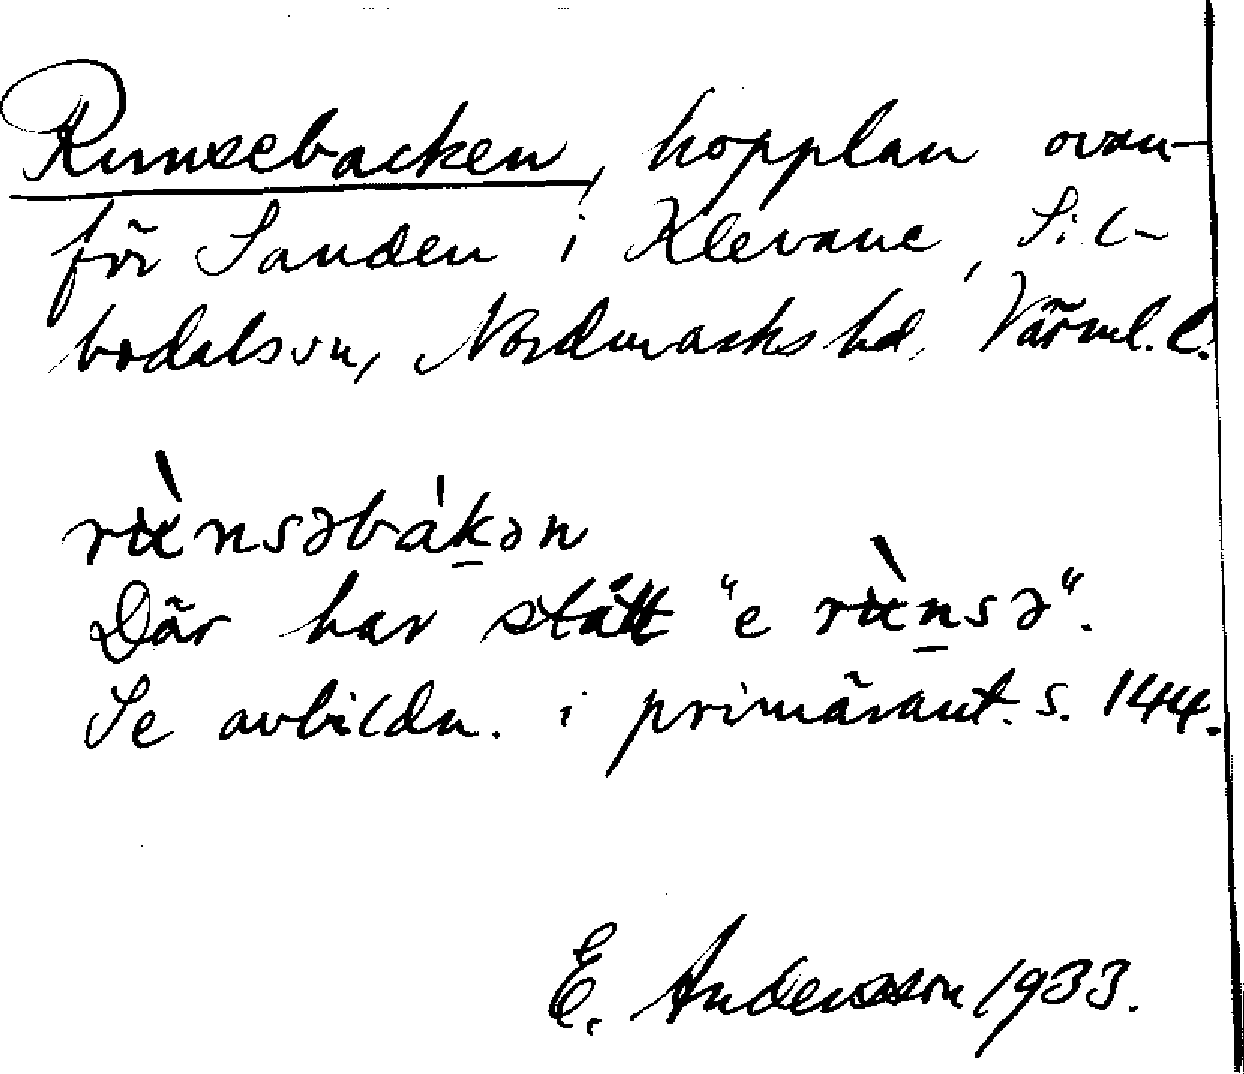 Runsebacken, hopplan ovan-
för Sanden i Klevane, Sil-
bodalssn, Nordmarks hd, Värml. l.
rʉ̀nsəbákən
Där har stått "e rʉ̀nsə".
Se avbildn. i primärant. s. 144.
E. Andersson 1933.